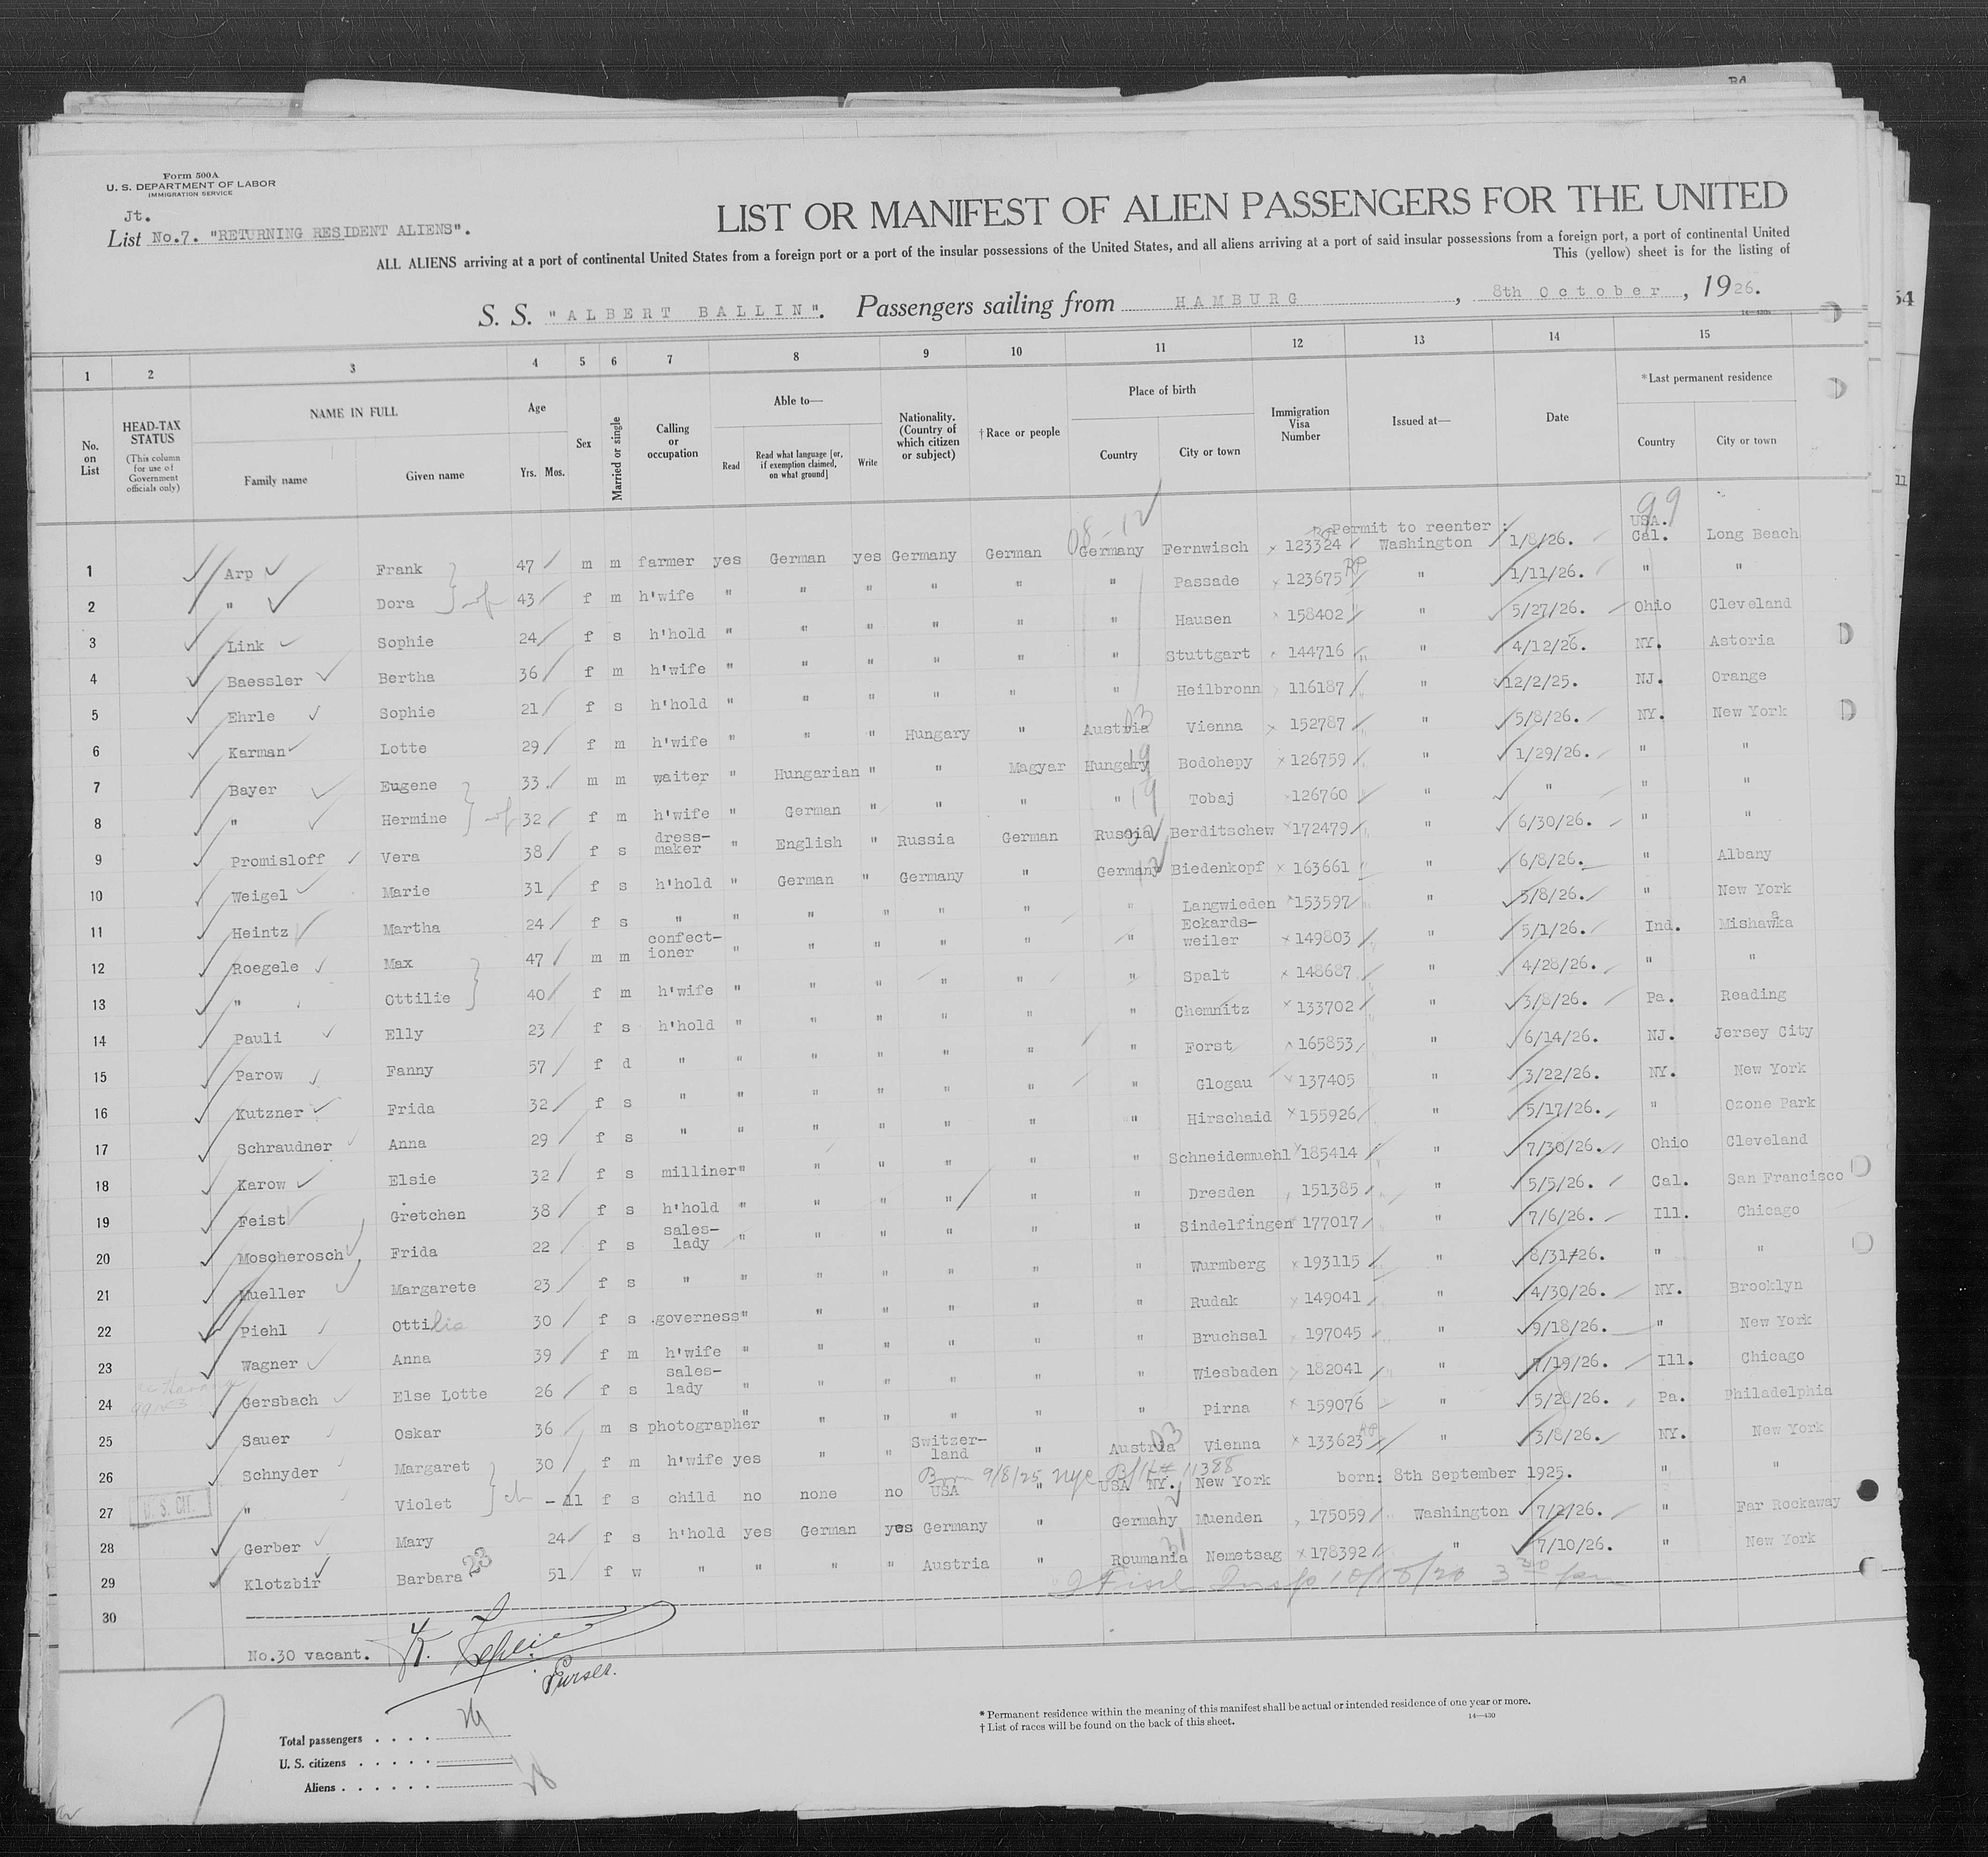 Rd
Form 500A
U. S. DEPARTMENT OF LABOR
IMMIGRATION SERVICE
Jt.
List No.7. "RETURNING RESIDENT ALIENS".
LIST OR MANIFEST OF ALIEN PASSENGERS FOR THE UNITED
ALL ALIENS arriving at a port of continental United States from a foreign port or a port of the insular possessions of the United States, and all aliens arriving at a port of said insular possessions from a foreign port, a port of continental United
This (yellow) sheet is for the listing of
S. S. "ALBERT BALLIN". Passengers sailing from HAMBURG, 8th October, 1926.
54
1 2 3 4 5 6 7 8 9 10 11 12 13 14 15
No. on List
HEAD-TAX STATUS (This column for use of Government officials only)
NAME IN FULL Family name Given name
Age Yrs. Mos.
Sex
Married or single
Calling or occupation
Able to— Read Read what language [or, if exemption claimed, on what ground] Write
Nationality. (Country of which citizen or subject)
† Race or people
Place of birth Country City or town
Immigration Visa Number
Issued at—
Date
* Last permanent residence Country City or town
11
08-12 99
Permit to reenter : USA.
1 Arp Frank 47 m m farmer yes German yes Germany German Germany Fernwisch 123324 Washington 1/8/26. Cal. Long Beach
2 " Dora 43 f m h'wife " " " " " " Passade 123675 " 1/11/26. " "
3 Link Sophie 24 f s h'hold " " " " " " Hausen 158402 " 5/27/26. Ohio Cleveland
4 Baessler Bertha 36 f m h'wife " " " " " " Stuttgart 144716 " 4/12/26. NY. Astoria
5 Ehrle Sophie 21 f s h'hold " " " " " " Heilbronn 116187 " 12/2/25. NJ. Orange
6 Karman Lotte 29 f m h'wife " " " Hungary " Austria 03 Vienna 152787 " 5/8/26. NY. New York
7 Bayer Eugene 33 m m waiter " Hungarian " " Magyar Hungary 19 Bodohepy 126759 " 1/29/26. " "
8 " Hermine 32 f m h'wife " German " " " " 19 Tobaj 126760 " " " "
9 Promisloff Vera 38 f s dress-maker " English " Russia German Russia Berditschew 172479 " 6/30/26. " "
10 Weigel Marie 31 f s h'hold " German " Germany " Germany 12 Biedenkopf 163661 " 6/8/26. " Albany
11 Heintz Martha 24 f s " " " " " " " Langwieden 153597 " 5/8/26. " New York
12 Roegele Max 47 m m confect-ioner " " " " " " Eckards-weiler 149803 " 5/1/26. Ind. Mishawaka
13 " Ottilie 40 f m h'wife " " " " " " Spalt 148687 " 4/28/26. " "
14 Pauli Elly 23 f s h'hold " " " " " " Chemnitz 133702 " 3/8/26. Pa. Reading
15 Parow Fanny 57 f d " " " " " " " Forst 165853 " 6/14/26. NJ. Jersey City
16 Kutzner Frida 32 f s " " " " " " " Glogau 137405 " 3/22/26. NY. New York
17 Schraudner Anna 29 f s " " " " " " " Hirschaid 155926 " 5/17/26. " Ozone Park
18 Karow Elsie 32 f s milliner " " " " " " Schneidemuehl 185414 " 7/30/26. Ohio Cleveland
19 Feist Gretchen 38 f s h'hold " " " " " " Dresden 151385 " 5/5/26. Cal. San Francisco
20 Moscherosch Frida 22 f s sales-lady " " " " " " Sindelfingen 177017 " 7/6/26. Ill. Chicago
21 Mueller Margarete 23 f s " " " " " " " Wurmberg 193115 " 8/31/26. " "
22 Piehl Ottilie 30 f s governess " " " " " " Rudak 149041 " 4/30/26. NY. Brooklyn
23 Wagner Anna 39 f m h'wife " " " " " " Bruchsal 197045 " 9/18/26. " New York
24 Gersbach Else Lotte 26 f s sales-lady " " " " " " Wiesbaden 182041 " 7/19/26. Ill. Chicago
25 Sauer Oskar 36 m s photographer " " " " " " Pirna 159076 " 5/28/26. Pa. Philadelphia
26 Schnyder Margaret 30 f m h'wife yes " " Switzer-land " Austria 03 Vienna 133623 " 3/8/26. NY. New York
Born 9/8/25 NYC
27 U. S. CIT. " Violet ch - 11 f s child no none no USA " USA NY. New York born: 8th September 1925. " "
28 Gerber Mary 24 f s h'hold yes German yes Germany " Germany Muenden 175059 Washington 7/2/26. " Far Rockaway
29 Klotzbir Barbara 23 51 f w " " " " Austria " Roumania 21 Nemetsag 178392 " 7/10/26. " New York
30
No.30 vacant.
Purser.
Total passengers . . . .
U. S. citizens . . . . .
Aliens . . . . . .
* Permanent residence within the meaning of this manifest shall be actual or intended residence of one year or more.
† List of races will be found on the back of this sheet.
14—430